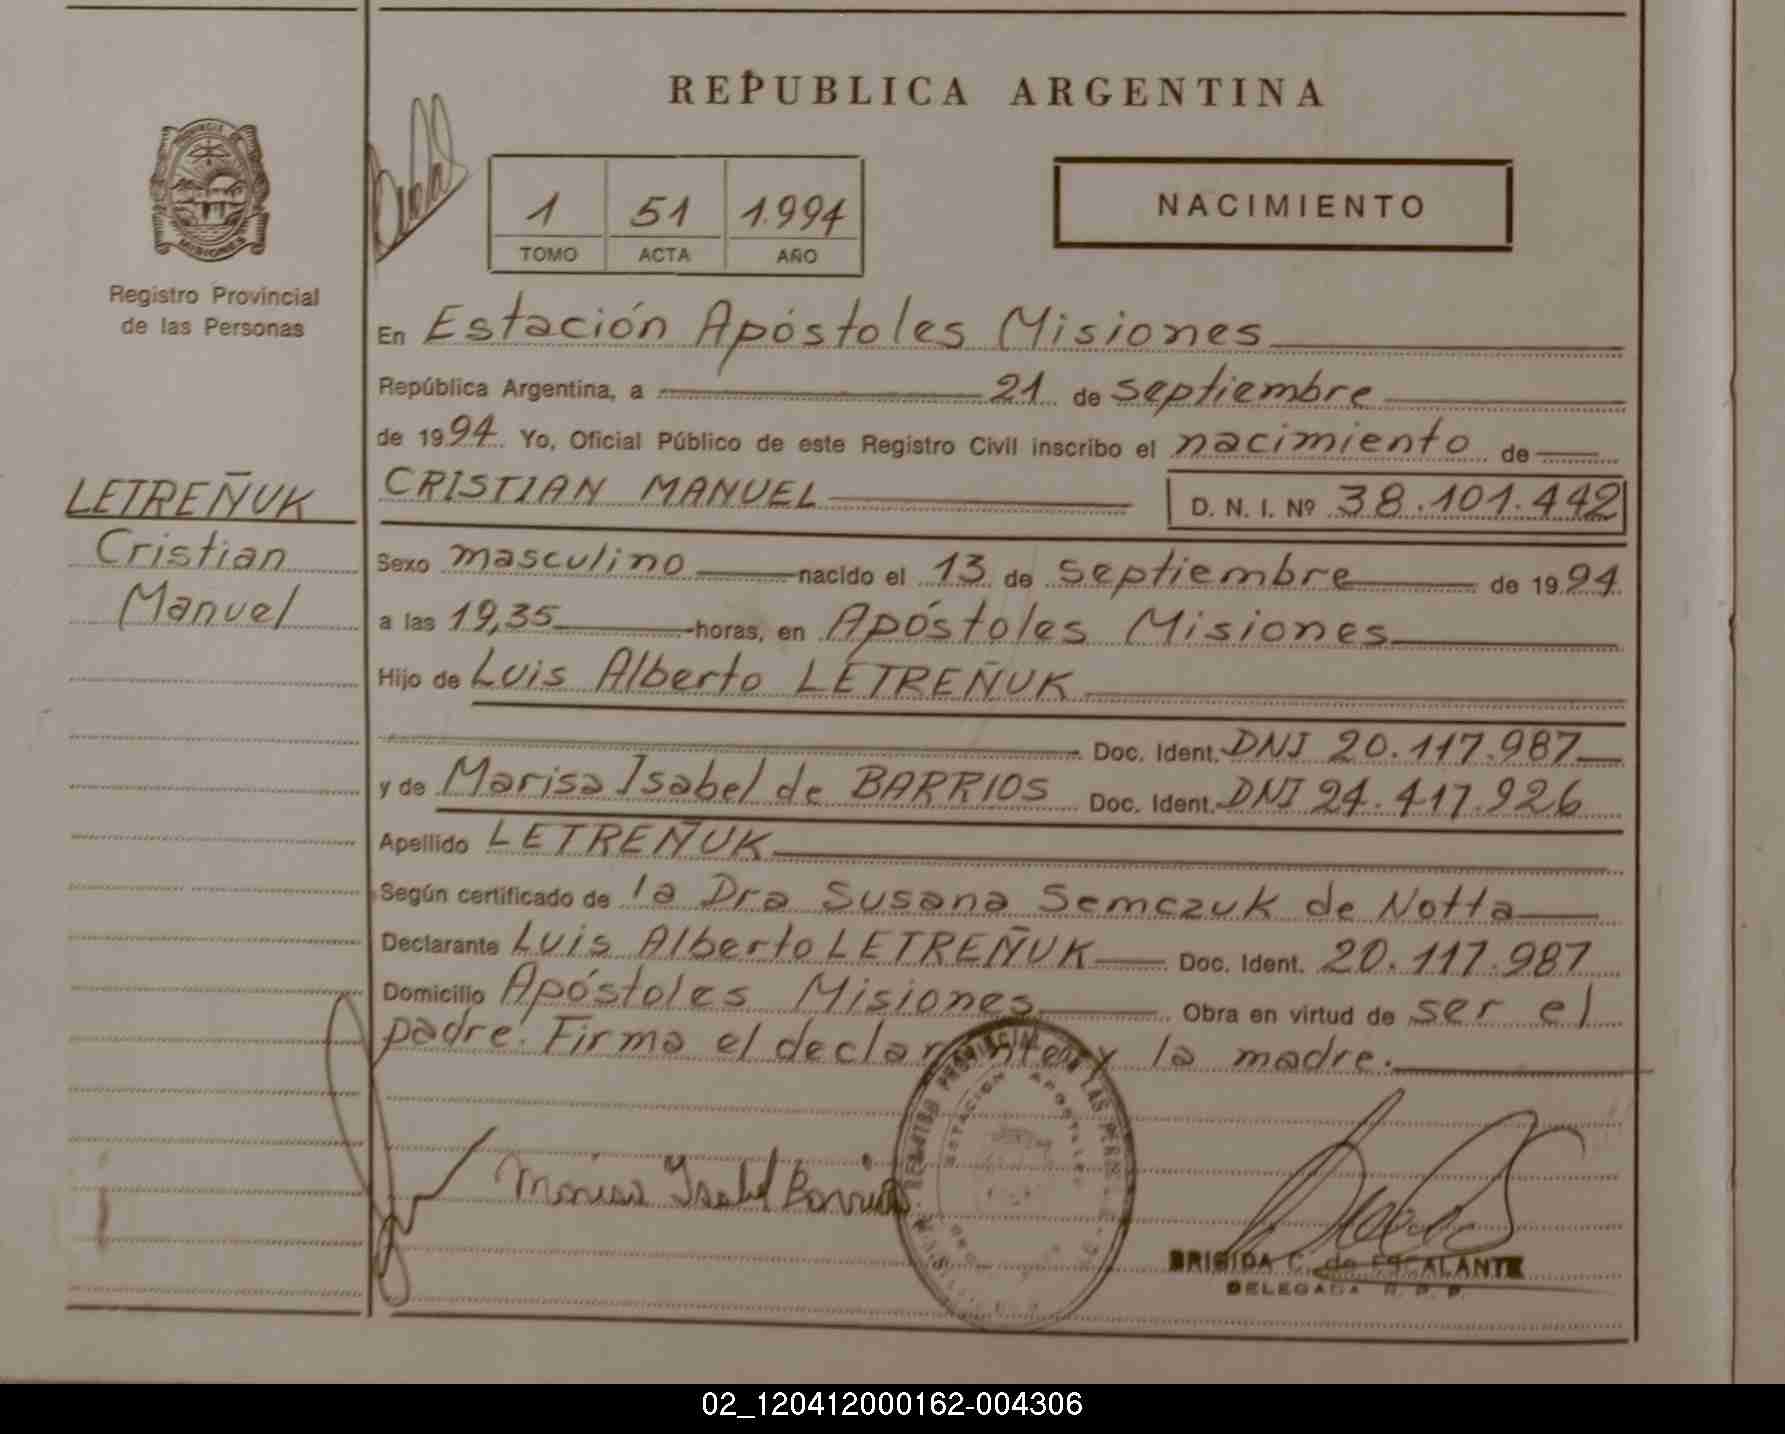 REPUBLICA ARGENTINA
PROVINCIA
MISIONES
Registro Provincial
de las Personas
1 51 1.994
TOMO ACTA AÑO
NACIMIENTO
En Estación Apóstoles Misiones
República Argentina, a 21 de septiembre
de 1994 Yo, Oficial Público de este Registro Civil inscribo el nacimiento de
LETREÑUK
Cristian
Manuel
CRISTIAN MANUEL D. N. I. Nº 38.101.442
Sexo masculino nacido el 13 de septiembre de 1994
a las 19,35 horas, en Apóstoles Misiones
Hijo de Luis Alberto LETREÑUK
Doc. Ident. DNI 20.117.987
y de Marisa Isabel de BARRIOS Doc. Ident. DNI 24.417.926
Apellido LETREÑUK
Según certificado de la Dra Susana Semczuk de Notta
Declarante Luis Alberto LETREÑUK Doc. Ident. 20.117.987
Domicilio Apóstoles Misiones Obra en virtud de ser el
padre. Firma el declarante y la madre.
Marisa Isabel Barrios
REGISTRO PROVINCIAL DE LAS PERSONAS
ESTACION APOSTOLES
MISIONES
BRIGIDA C. de ESCALANTE
DELEGADA R. P. P.
02_120412000162-004306